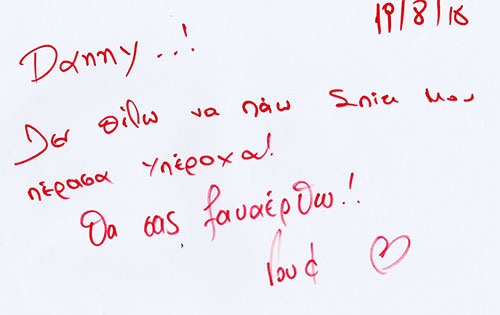 19/8/16
Danny...!
Δεν θέλω να πάω Σπίτι μου
πέρασα Υπέροχα!
Θα σας ξαναέρθω!!